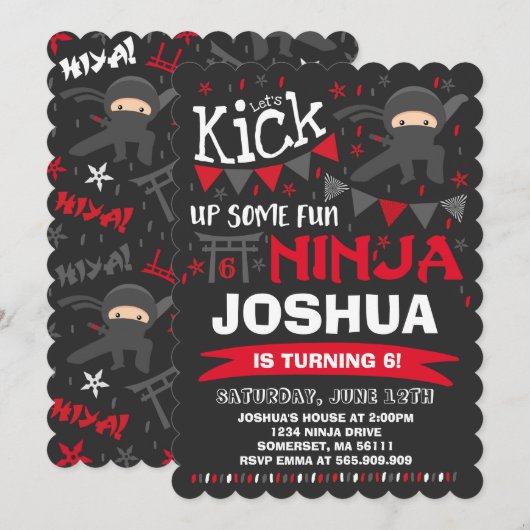 HIYA!
HIYA!
HIYA!
HIYA!
HIYA!
Let's
Kick
UP SOME FUN
6
NINJA
JOSHUA
IS TURNING 6!
SATURDAY, JUNE 12TH
JOSHUA'S HOUSE AT 2:00PM
1234 NINJA DRIVE
SOMERSET, MA 56111
RSVP EMMA AT 565.909.909